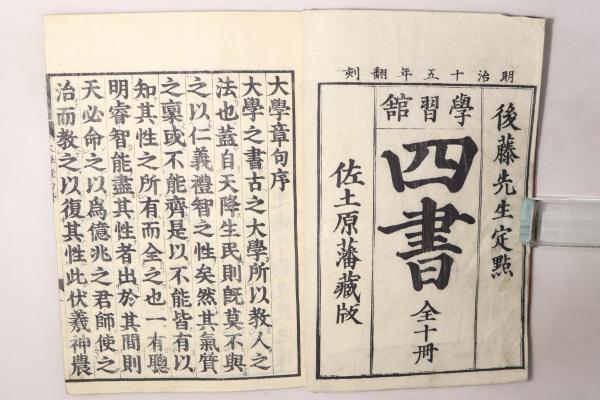 明治十五年翻刻
學習館
後藤先生定點
四書
全十冊
佐土原藩藏版
大學章句序
大學之書古之大學所以教人之
法也蓋自天降生民則既莫不與
之以仁義禮智之性矣然其氣質
之稟或不能齊是以不能皆有以
知其性之所有而全之也一有聰
明睿智能盡其性者出於其間則
天必命之以爲億兆之君師使之
治而教之以復其性此伏羲神農